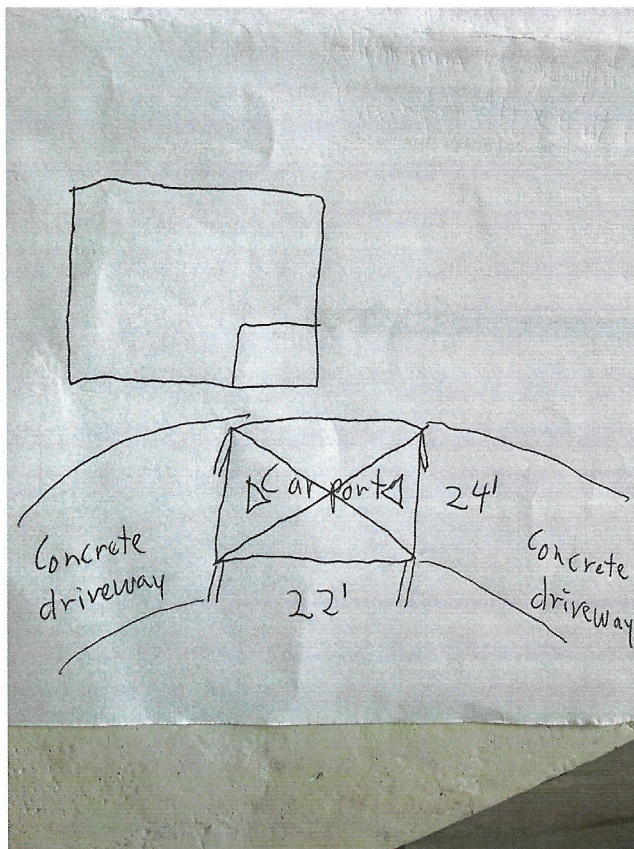 Carport
24'
Concrete
driveway
Concrete
driveway
22'